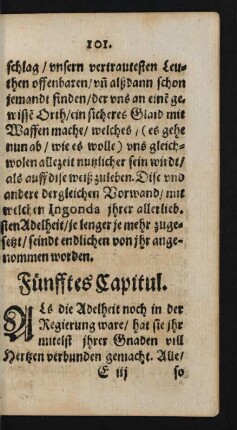 101.
schlag / vnsern vertrautesten Leu-
then offenbaren / vñ alßdann schon
jemandt finden / der vns an einẽ ge-
wissẽ Orth / ein sicheres Glaid mit
Waffen mache / welches / (es gehe
nun ab / wie es wolle) vns gleich-
wolen allezeit nutzlicher sein windt /
als auff dise weiß zuleben. Dise vnd
andere dergleichen Vorwand / mit
welchen Ingonda jhrer allerlieb.
sten Adelheit / je lenger je mehr zuge-
setzt / seindt endlichen von jhr ange-
nommen worden.
Fünfftes Capitul.
ALs die Adelheit noch in der
Regierung ware / hat sie jhr
mitelst jhrer Gnaden vill
Hertzen verbunden gemacht. Alle /
E iij so